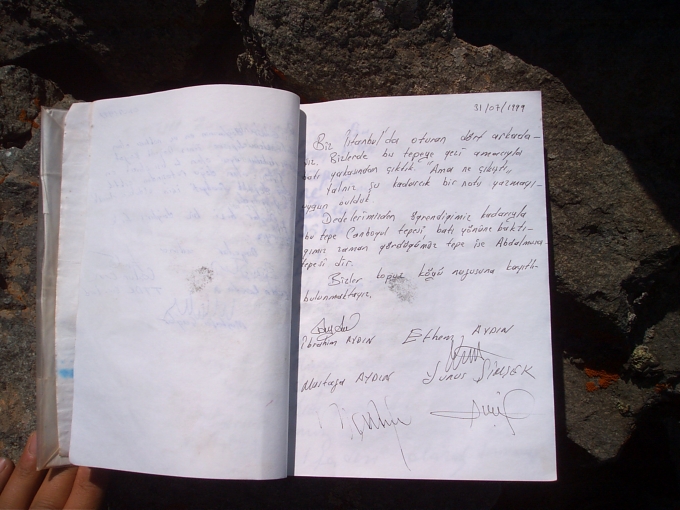 31/07/1999
Biz İstanbul'da oturan dört arkada-
ız. Bizlerde bu tepeye gezi amacıyla
batı yakasından çıktık. "Ama ne çıkıştı„
Yalnız şu kadarcık bir notu yazmayı-
uygun bulduk.
Dedelerimizden öğrendiğimiz kadarıyla
bu tepe Canboyul tepesi batı yönüne baktı-
ğımız zaman gördüğümüz tepe ise Abdalmusa-
tepesi dir.
Bizler köyü nufusuna kayıtlı-
bulunmaktayız.
İbrahim AYDIN Ethem AYDIN
Mustafa AYDIN Yunus ŞİMŞEK